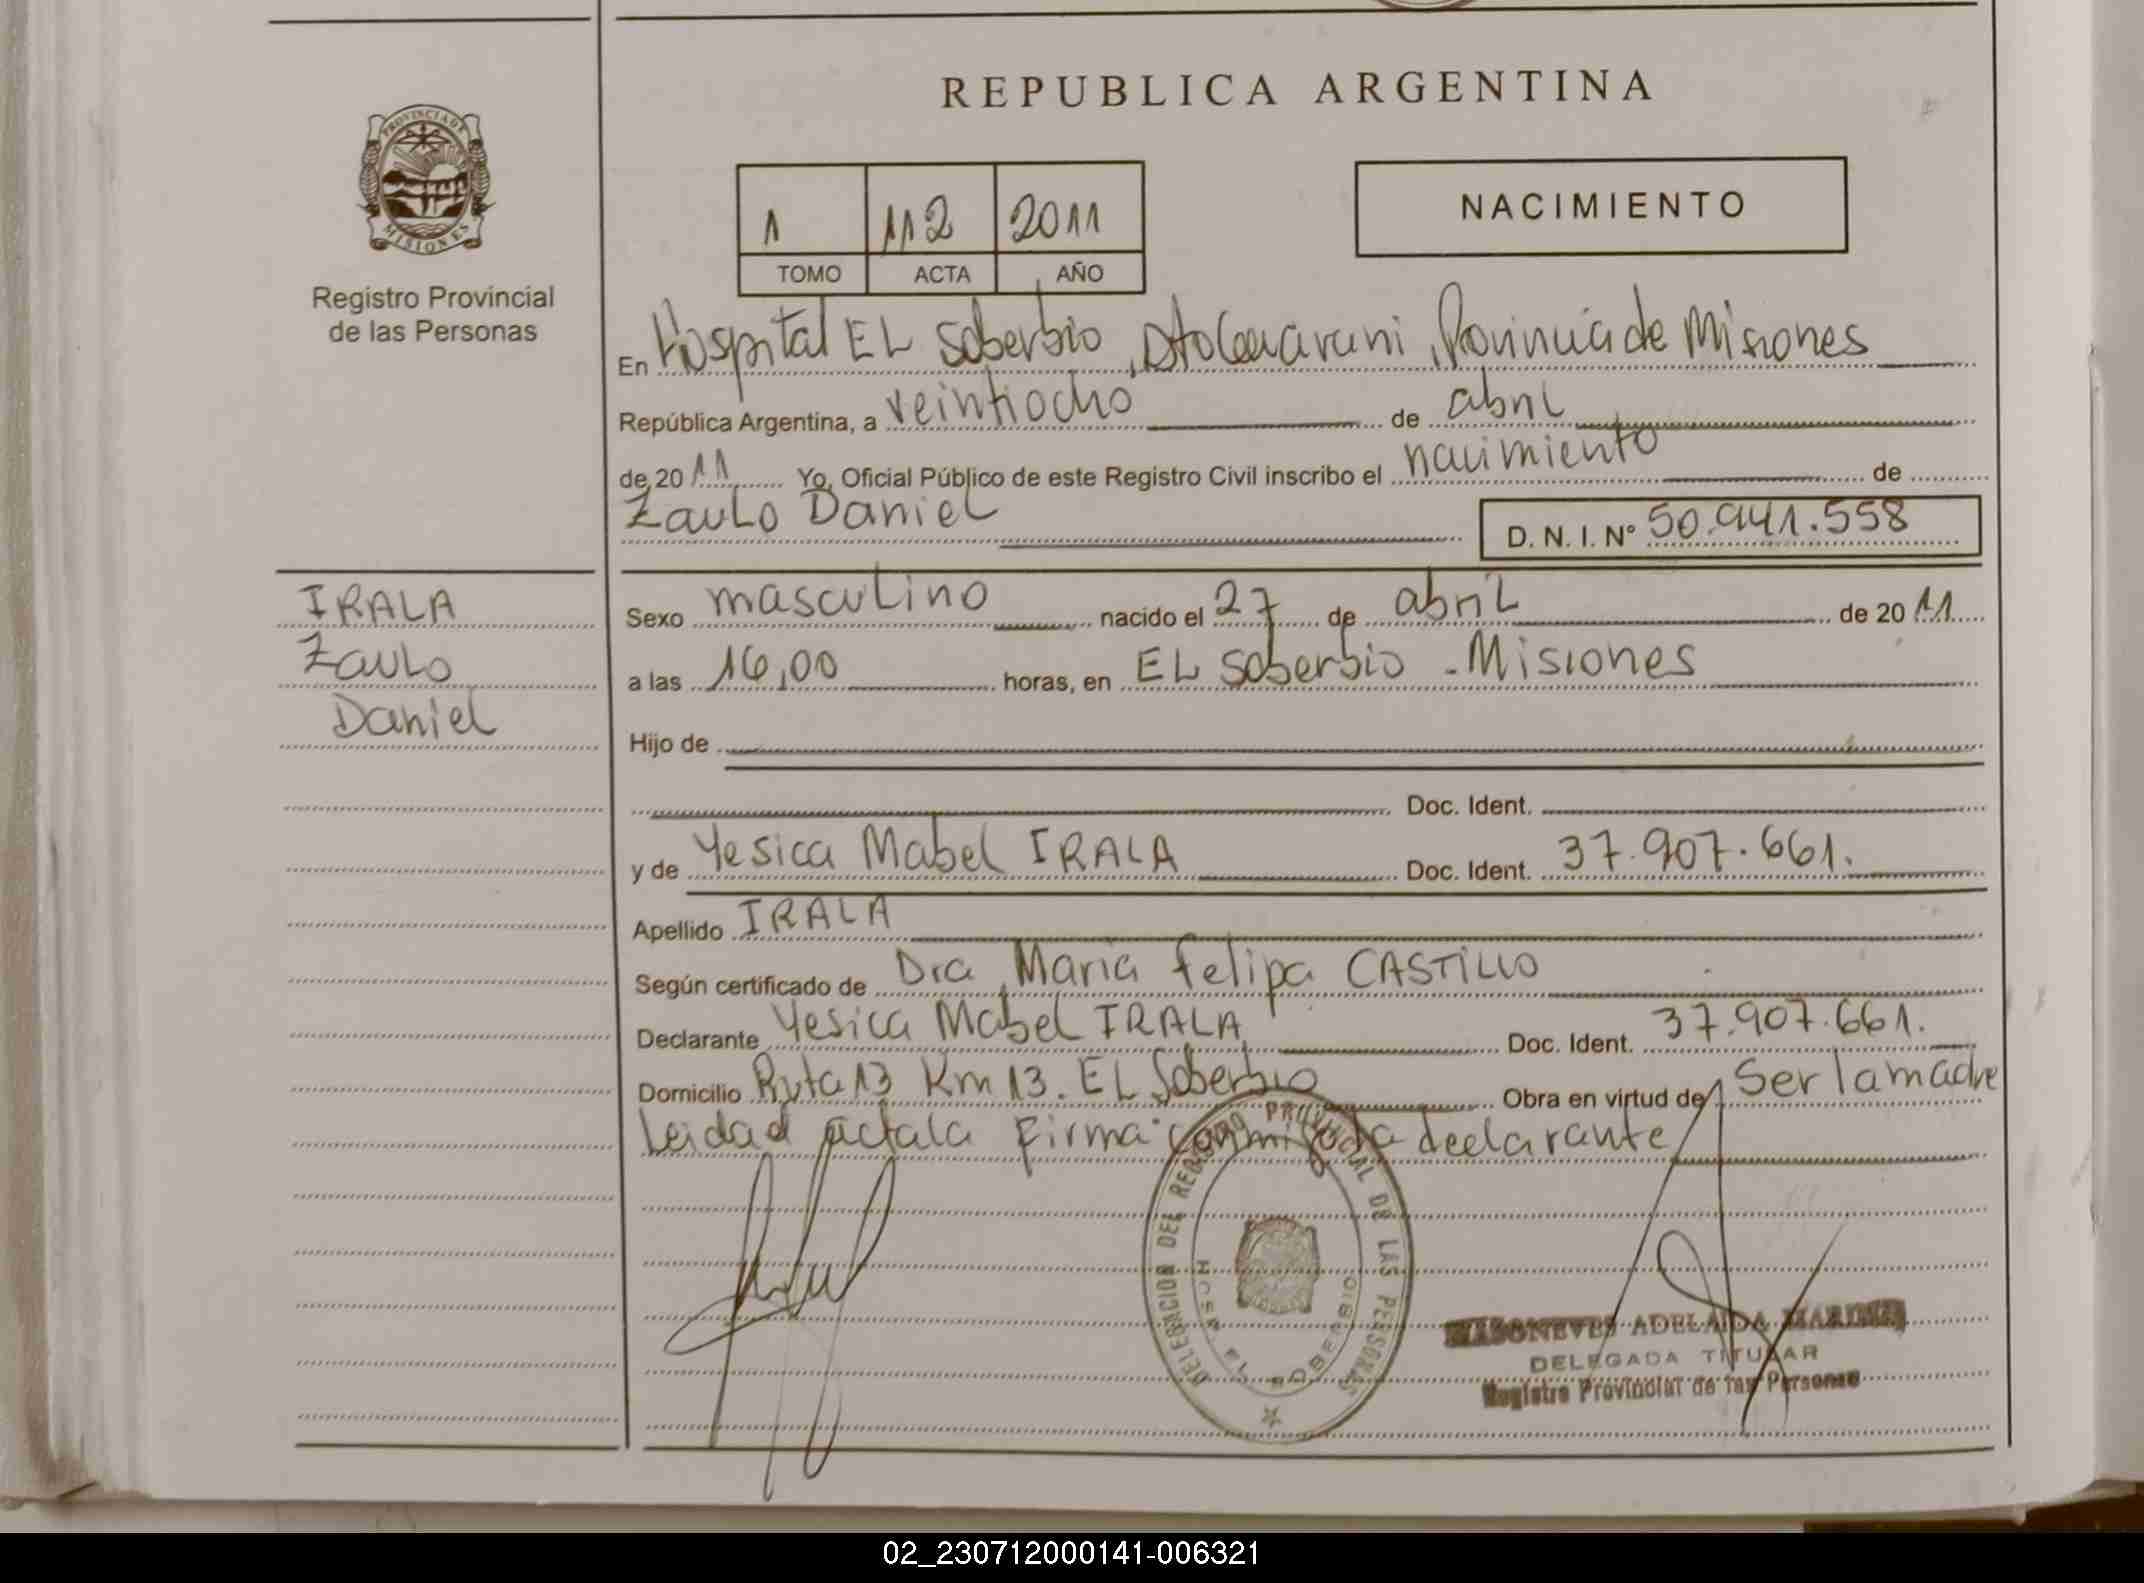 REPUBLICA ARGENTINA
PROVINCIA DE
MISIONES
Registro Provincial
de las Personas
1 112 2011
TOMO ACTA AÑO
NACIMIENTO
En Hospital EL Soberbio, Dto Guarani, Provincia de Misiones
República Argentina, a veintiocho de abril
de 2011 Yo, Oficial Público de este Registro Civil inscribo el nacimiento de
Zaulo Daniel D. N. I. N° 50.941.558
IRALA
Zaulo
Daniel
Sexo masculino nacido el 27 de abril de 2011
a las 16,00 horas, en EL Soberbio - Misiones
Hijo de
Doc. Ident.
y de Yesica Mabel IRALA Doc. Ident. 37.907.661.
Apellido IRALA
Según certificado de Dra Maria Felipa CASTILLO
Declarante Yesica Mabel IRALA Doc. Ident. 37.907.661.
Domicilio Ruta 13 Km 13. EL Soberbio Obra en virtud de Ser la madre
Leidad acta la firma conmigo la declarante
DELEGACION DEL REGISTRO PROVINCIAL DE LAS PERSONAS
HOSP. EL SOBERBIO
ADELAIDA
DELEGADA TITULAR
Registro Provincial de las Personas
02_230712000141-006321